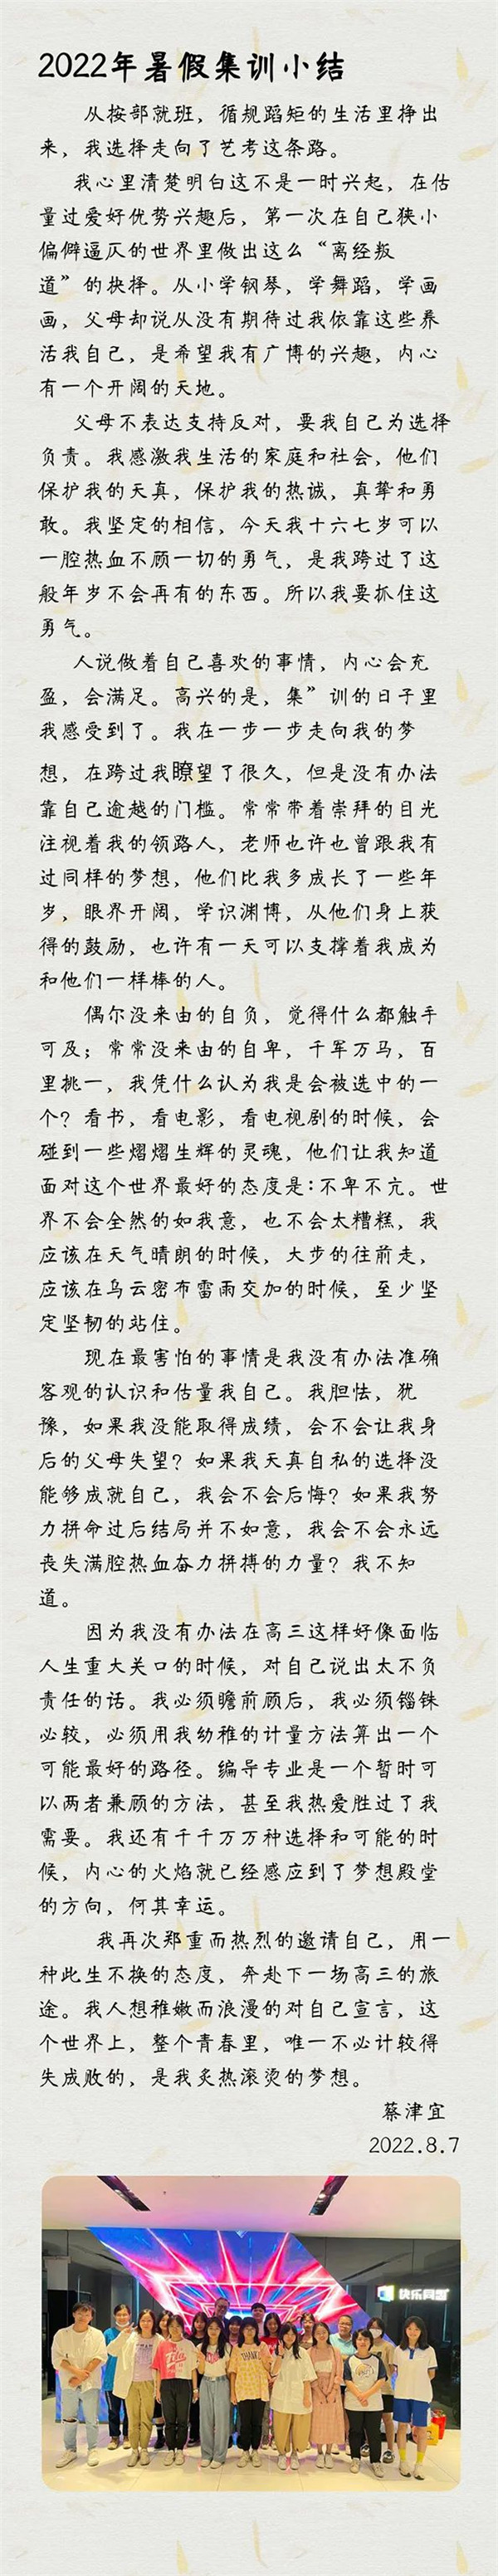 2022年暑假集训小结
从按部就班，循规蹈矩的生活里挣出
来，我选择走向了艺考这条路。
我心里清楚明白这不是一时兴起，在估
量过爱好优势兴趣后，第一次在自己狭小
偏僻逼仄的世界里做出这么“离经叛
道”的抉择。从小学钢琴，学舞蹈，学画
画，父母却说从没有期待过我依靠这些养
活我自己，是希望我有广博的兴趣，内心
有一个开阔的天地。
父母不表达支持反对，要我自己为选择
负责。我感激我生活的家庭和社会，他们
保护我的天真，保护我的热诚，真挚和勇
敢。我坚定的相信，今天我十六七岁可以
一腔热血不顾一切的勇气，是我跨过了这
般年岁不会再有的东西。所以我要抓住这
勇气。
人说做着自己喜欢的事情，内心会充
盈，会满足。高兴的是，集”训的日子里
我感受到了。我在一步一步走向我的梦
想，在跨过我瞭望了很久，但是没有办法
靠自己逾越的门槛。常常带着崇拜的目光
注视着我的领路人，老师也许也曾跟我有
过同样的梦想，他们比我多成长了一些年
岁，眼界开阔，学识渊博，从他们身上获
得的鼓励，也许有一天可以支撑着我成为
和他们一样棒的人。
偶尔没来由的自负，觉得什么都触手
可及；常常没来由的自卑，千军万马，百
里挑一，我凭什么认为我是会被选中的一
个？看书，看电影，看电视剧的时候，会
碰到一些熠熠生辉的灵魂，他们让我知道
面对这个世界最好的态度是：不卑不亢。世
界不会全然的如我意，也不会太糟糕，我
应该在天气晴朗的时候，大步的往前走，
应该在乌云密布雷雨交加的时候，至少坚
定坚韧的站住。
现在最害怕的事情是我没有办法准确
客观的认识和估量我自己。我胆怯，犹
豫，如果我没能取得成绩，会不会让我身
后的父母失望？如果我天真自私的选择没
能够成就自己，我会不会后悔？如果我努
力拼命过后结局并不如意，我会不会永远
丧失满腔热血奋力拼搏的力量？我不知
道。
因为我没有办法在高三这样好像面临
人生重大关口的时候，对自己说出太不负
责任的话。我必须瞻前顾后，我必须锱铢
必较，必须用我幼稚的计量方法算出一个
可能最好的路径。编导专业是一个暂时可
以两者兼顾的方法，甚至我热爱胜过了我
需要。我还有千千万万种选择和可能的时
候，内心的火焰就已经感应到了梦想殿堂
的方向，何其幸运。
我再次郑重而热烈的邀请自己，用一
种此生不换的态度，奔赴下一场高三的旅
途。我人想稚嫩而浪漫的对自己宣言，这
个世界上，整个青春里，唯一不必计较得
失成败的，是我炙热滚烫的梦想。
蔡津宜
2022.8.7